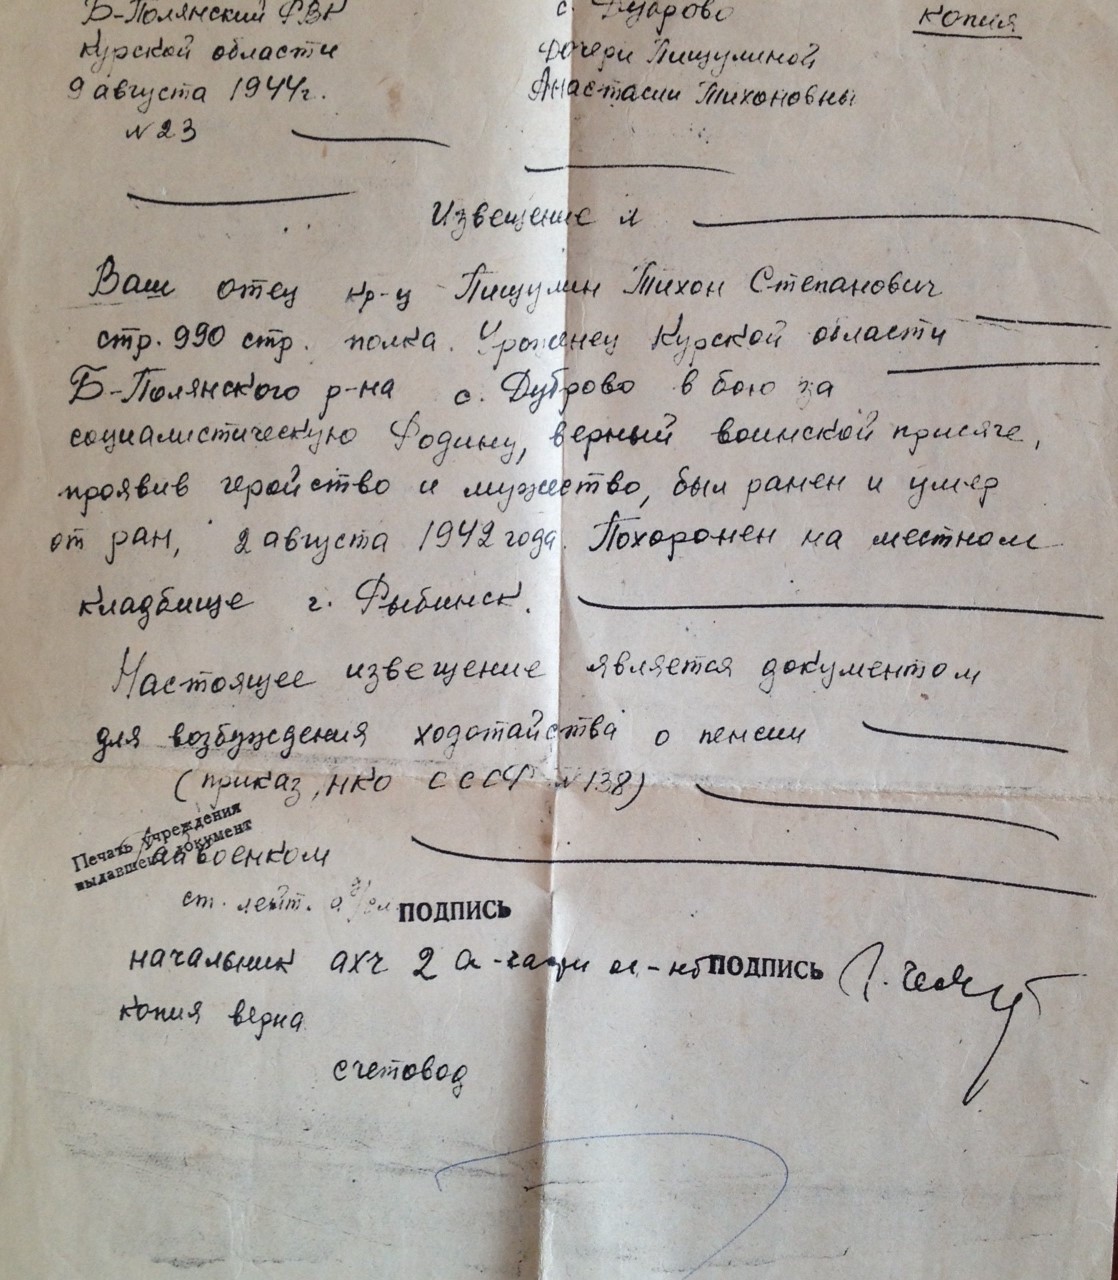 Б-Полянский РВК
Курской области
9 августа 1944г.
№23
с. Дуброво
Дочери Пищулиной
Анастасии Тихоновны
копия
Извещение я
Ваш отец кр-ц Пищулин Тихон Степанович
стр. 990 стр. полка. Уроженец Курской области
Б-Полянского р-на с. Дуброво в бою за
социалистическую Родину, верный воинской присяге,
проявив геройство и мужество, был ранен и умер
от ран, 2 августа 1942 года. Похоронен на местном
кладбище г. Рыбинск.
Настоящее извещение является документом
для возбуждения ходотайства о пенсии
(приказ, НКО СССР №138)
Печать учреждения
выдавшего документ
айвоенком
ст. лейт. ПОДПИСЬ
начальник АХЧ 2 ПОДПИСЬ
копия верна
счетовод